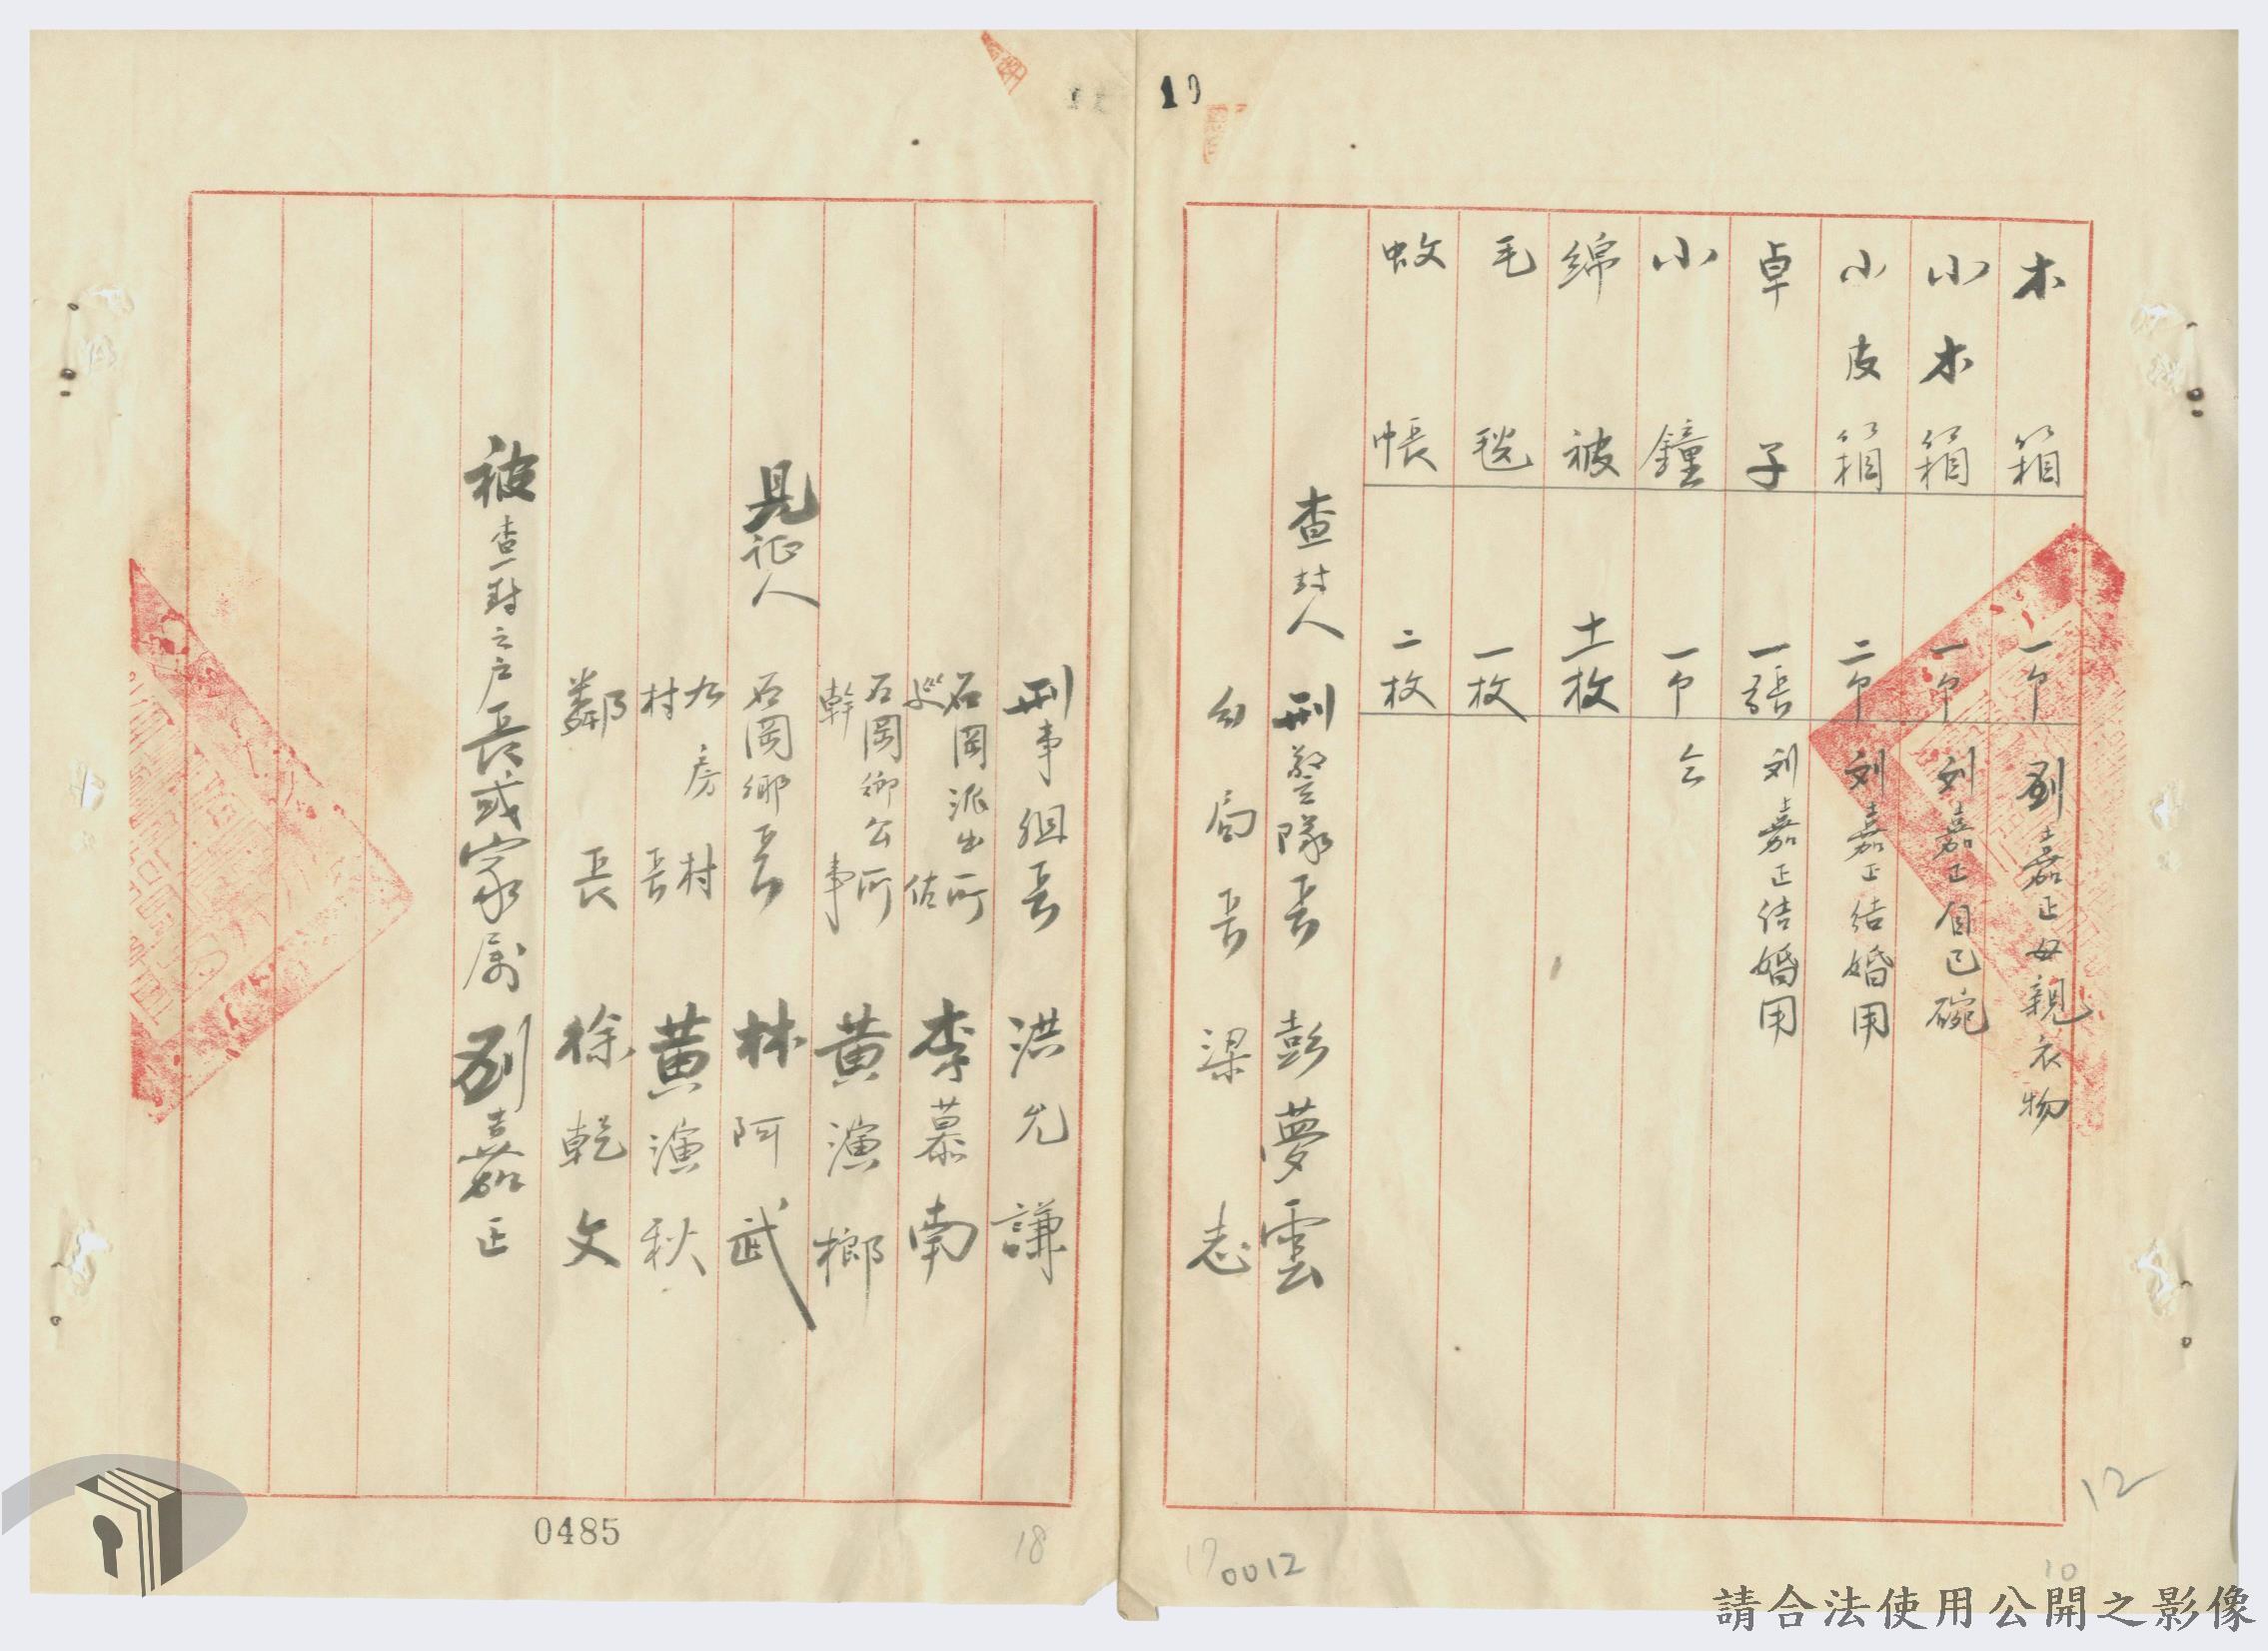 木箱 一个 劉嘉正母親衣物
小木箱 一个 刘嘉正自己碗
小皮箱 二个 刘嘉正結婚用
卓子 一張 刘嘉正结婚用
小鐘 一个 仝
綿被 十一枚
毛毯 一枚
蚊帳 二枚
查封人 刑警隊長 彭夢雲
分局長 梁志
刑事組長 洪允謙
石岡派出所
巡佐 李慕南
石岡鄉公所
幹事 黄演榔
見証人 石岡鄉長 林阿武
九房村
村長 黄演秋
鄰長 徐乾文
被查封之户長或家属 劉嘉正
0485
18
0012
12
10
請合法使用公開之影像